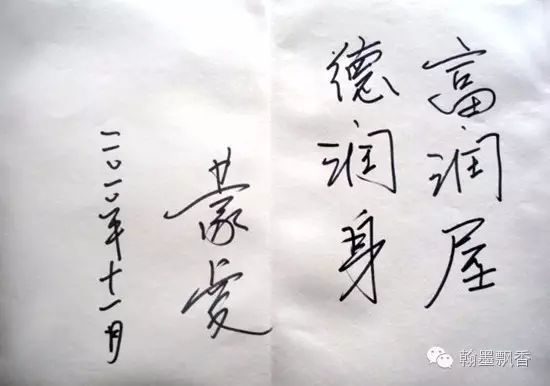 富润屋
德润身
蒙曼
二〇一〇年十一月
翰墨飘香